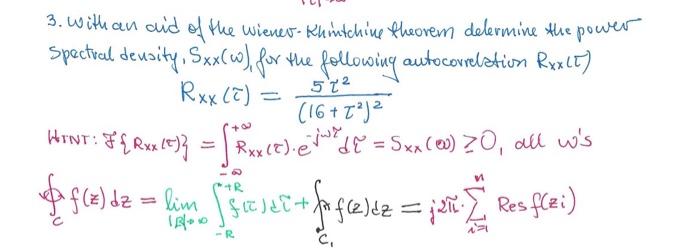 3. With an aid of the Wiener-Khintchine theorem determine the power
Spectral density, Sxx(ω), for the following autocorrelation Rxx(τ)
Rxx(τ) = 5τ² / (16 + τ²)²
HINT: ℱ{Rxx(τ)} = ∫_{-∞}^{+∞} Rxx(τ)·e^{-jωτ} dτ = Sxx(ω) ≥ 0, all ω's
∮_C f(z)dz = lim_{|R|→∞} ∫_{-R}^{+R} f(τ)dτ + ∫_{C₁} f(z)dz = j2π·∑_{i=1}^{n} Res f(zi)